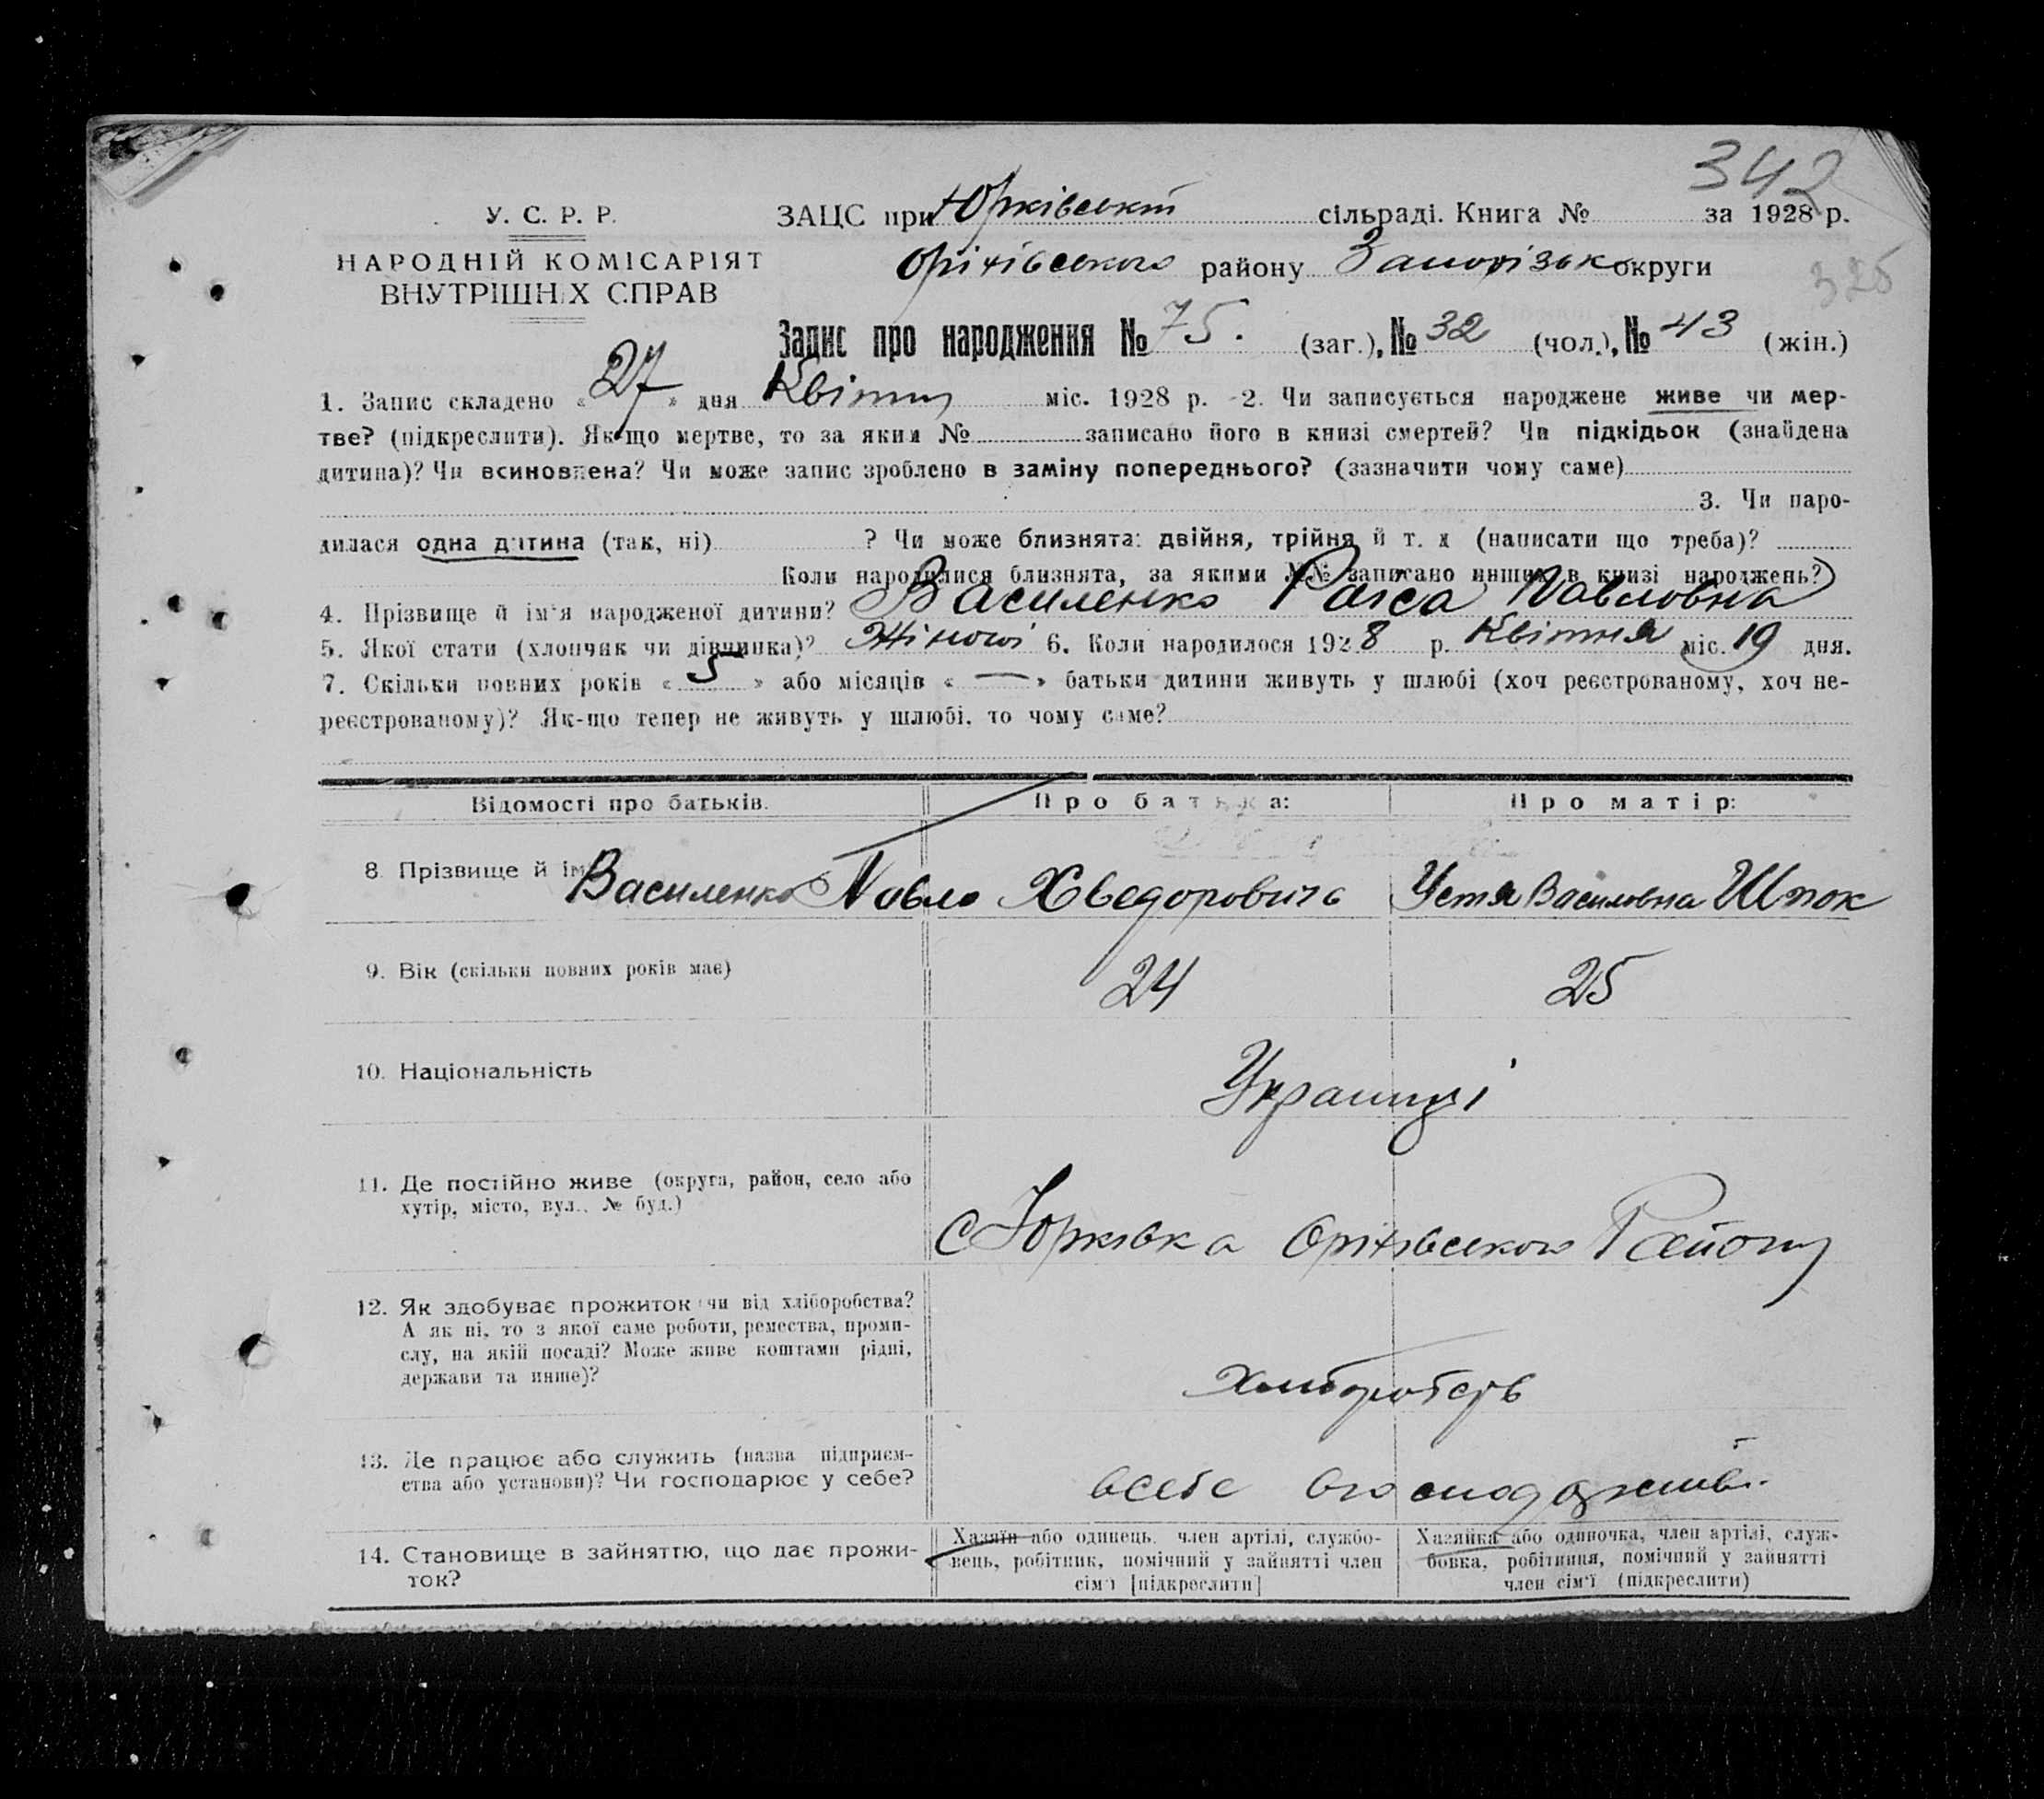 342
У. С. Р. Р.
ЗАЦС при Юрківськт сільраді. Книга № за 1928 р.
НАРОДНІЙ КОМІСАРІЯТ
ВНУТРІШНІХ СПРАВ
Оріхівського району Запорізьк округи
325
Запис про народження № 75. (заг.), № 32 (чол.), № 43 (жін.)
1. Запис складено « 27 » дня Квітну міс. 1928 р. 2. Чи записується народжене живе чи мер-
тве? (підкреслити). Як-що мертве, то за яким № записано його в книзі смертей? Чи підкідьок (знайдена
дитина)? Чи всиновлена? Чи може запис зроблено в заміну попереднього? (зазначити чому саме)
3. Чи наро-
дилася одна дитина (так, ні) ? Чи може близнята: двійня, трійня й т. д (написати що треба)?
Коли народилися близнята, за якими №№ записано инших в книзі народжень?
4. Прізвище й ім'я народженої дитини? Василенко Раіса Павловна
5. Якої стати (хлопчик чи дівчинка)? Жіночоі 6. Коли народилося 1928 р. Квітня міс. 19 дня.
7. Скільки повних років « 5 » або місяців « — » батьки дитини живуть у шлюбі (хоч реєстрованому, хоч не-
реєстрованому)? Як-що тепер не живуть у шлюбі, то чому саме?
Відомості про батьків. Про батька: Про матір:
8. Прізвище й ім Василенко Павло Хведоровичь Устя Василовна Шпок
9. Вік (скільки повних років має) 24 25
10. Національність Украинці
11. Де постійно живе (округа, район, село або
хутір, місто, вул., № буд.)
с Юрківка Оріхівського Району
12. Як здобуває прожиток чи від хліборобства?
А як ні, то з якої саме роботи, ремества, проми-
слу, на якій посаді? Може живе коштами рідні,
держави та инше)?
13. Де працює або служить (назва підприєм-
ства або установи)? Чи господарює у себе?
всебе
14. Становище в зайняттю, що дає прожи-
ток?
Хазяїн або одинець, член артілі, службо-
вець, робітник, помічний у зайнятті член
сім'ї [підкреслити]
Хазяйка або одиночка, член артілі, служ-
бовка, робітниця, помічний у зайнятті
член сім'ї (підкреслити)